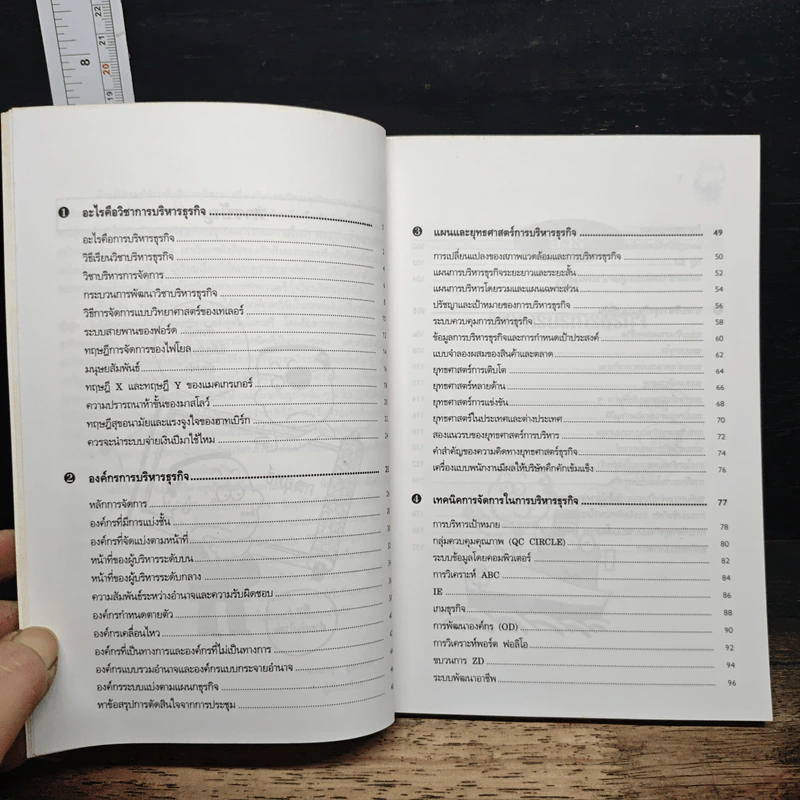 8
22
21
20
19
❶ อะไรคือวิชาการบริหารธุรกิจ 1
อะไรคือการบริหารธุรกิจ 2
วิธีเรียนวิชาบริหารธุรกิจ 4
วิชาบริหารการจัดการ 6
กระบวนการพัฒนาวิชาบริหารธุรกิจ 8
วิธีการจัดการแบบวิทยาศาสตร์ของเทเลอร์ 10
ระบบสายพานของฟอร์ด 12
ทฤษฎีการจัดการของไฟโยล 14
มนุษยสัมพันธ์ 16
ทฤษฎี X และทฤษฎี Y ของแมคเกรเกอร์ 18
ความปรารถนาห้าขั้นของมาสโลว์ 20
ทฤษฎีสุขอนามัยและแรงจูงใจของฮาทเบิร์ก 22
ควรจะนำระบบจ่ายเงินปีมาใช้ไหม 24
❷ องค์กรการบริหารธุรกิจ
หลักการจัดการ
องค์กรที่มีการแบ่งชั้น
องค์กรที่จัดแบ่งตามหน้าที่
หน้าที่ของผู้บริหารระดับบน
หน้าที่ของผู้บริหารระดับกลาง
ความสัมพันธ์ระหว่างอำนาจและความรับผิดชอบ
องค์กรกำหนดตายตัว
องค์กรเคลื่อนไหว
องค์กรที่เป็นทางการและองค์กรที่ไม่เป็นทางการ
องค์กรแบบรวมอำนาจและองค์กรแบบกระจายอำนาจ
องค์กรระบบแบ่งตามแผนกธุรกิจ
หาข้อสรุปการตัดสินใจจากการประชุม
❸ แผนและยุทธศาสตร์การบริหารธุรกิจ 49
การเปลี่ยนแปลงของสภาพแวดล้อมและการบริหารธุรกิจ 50
แผนการบริหารธุรกิจระยะยาวและระยะสั้น 52
แผนการบริหารโดยรวมและแผนเฉพาะส่วน 54
ปรัชญาและเป้าหมายของการบริหารธุรกิจ 56
ระบบควบคุมการบริหารธุรกิจ 58
ข้อมูลการบริหารธุรกิจและการกำหนดเป้าประสงค์ 60
แบบจำลองผสมของสินค้าและตลาด 62
ยุทธศาสตร์การเติบโต 64
ยุทธศาสตร์หลายด้าน 66
ยุทธศาสตร์การแข่งขัน 68
ยุทธศาสตร์ในประเทศและต่างประเทศ 70
สองแนวรบของยุทธศาสตร์การบริหาร 72
คำสำคัญของความคิดทางยุทธศาสตร์ธุรกิจ 74
เครื่องแบบพนักงานมีผลให้บริษัทคึกคักเข้มแข็ง 76
❹ เทคนิคการจัดการในการบริหารธุรกิจ 77
การบริหารเป้าหมาย 78
กลุ่มควบคุมคุณภาพ (QC CIRCLE) 80
ระบบข้อมูลโดยคอมพิวเตอร์ 82
การวิเคราะห์ ABC 84
IE 86
เกมธุรกิจ 88
การพัฒนาองค์กร (OD) 90
การวิเคราะห์พอร์ต ฟอลิโอ 92
ขบวนการ ZD 94
ระบบพัฒนาอาชีพ 96